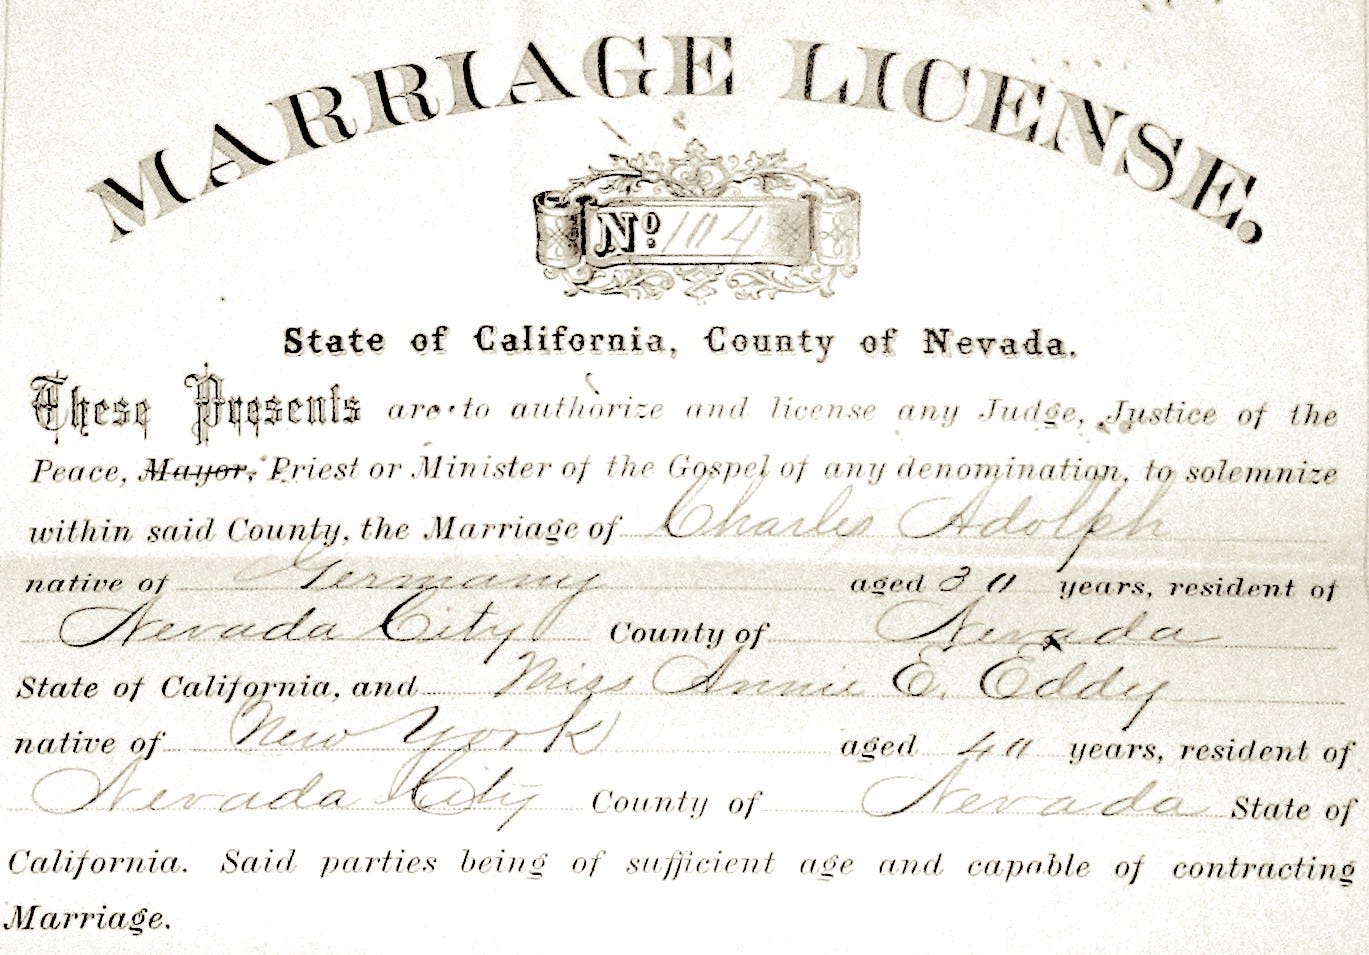 MARRIAGE LICENSE.
No. 104
State of California, County of Nevada.
These Presents are to authorize and license any Judge, Justice of the
Peace, Mayor, Priest or Minister of the Gospel of any denomination, to solemnize
within said County, the Marriage of Charles Adolph
native of Germany aged 30 years, resident of
Nevada City County of Nevada
State of California, and Miss Annie E. Eddy
native of New York aged 40 years, resident of
Nevada City County of Nevada State of
California. Said parties being of sufficient age and capable of contracting
Marriage.